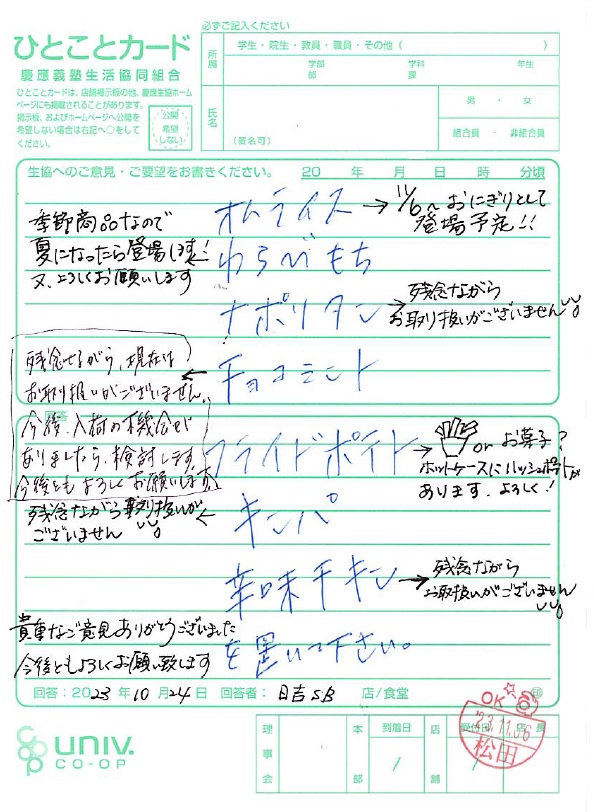 必ずご記入ください
ひとことカード
慶應義塾生活協同組合
ひとことカードは、店舗掲示板の他、慶應生協ホームページにも掲載されることがあります。
掲示板、およびホームページへ公開を
希望しない場合は右記へ○をして
ください。
公開
希望
しない
所属
学生・院生・教員・職員・その他（　　　　）
学部 学科 年
部 課
氏名
（匿名可）
男 ・ 女
組合員 ・ 非組合員
生協へのご意見・ご要望をお書きください。 20 年 月 日 時 分頃
オムライス
→ 11/6〜おにぎりとして
登場予定!!
わらびもち
季節商品なので
夏になったら登場します!
又、よろしくお願いします
ナポリタン
→ 残念ながら
お取り扱いがございません
チョコミント
残念ながら、現在は
お取り扱いがございません。
今後、入荷の機会が
ありましたら、検討します
今後ともよろしくお願いします
回答
フライドポテト
→ or お菓子?
ホットケースにハッシュポテトが
あります。よろしく!
キンパ
残念ながら取り扱いが
ございません
辛味チキン
→ 残念ながら
お取扱いがございません
を置いて下さい。
貴重なご意見ありがとうございました
今後ともよろしくお願い致します
回答：2023年10月24日 回答者： 日吉SB 店/食堂 印
OK
'23.11.06
松田
UNIV.
CO-OP
理事会
本部
到着日
/
店舗
受付日
/
店長